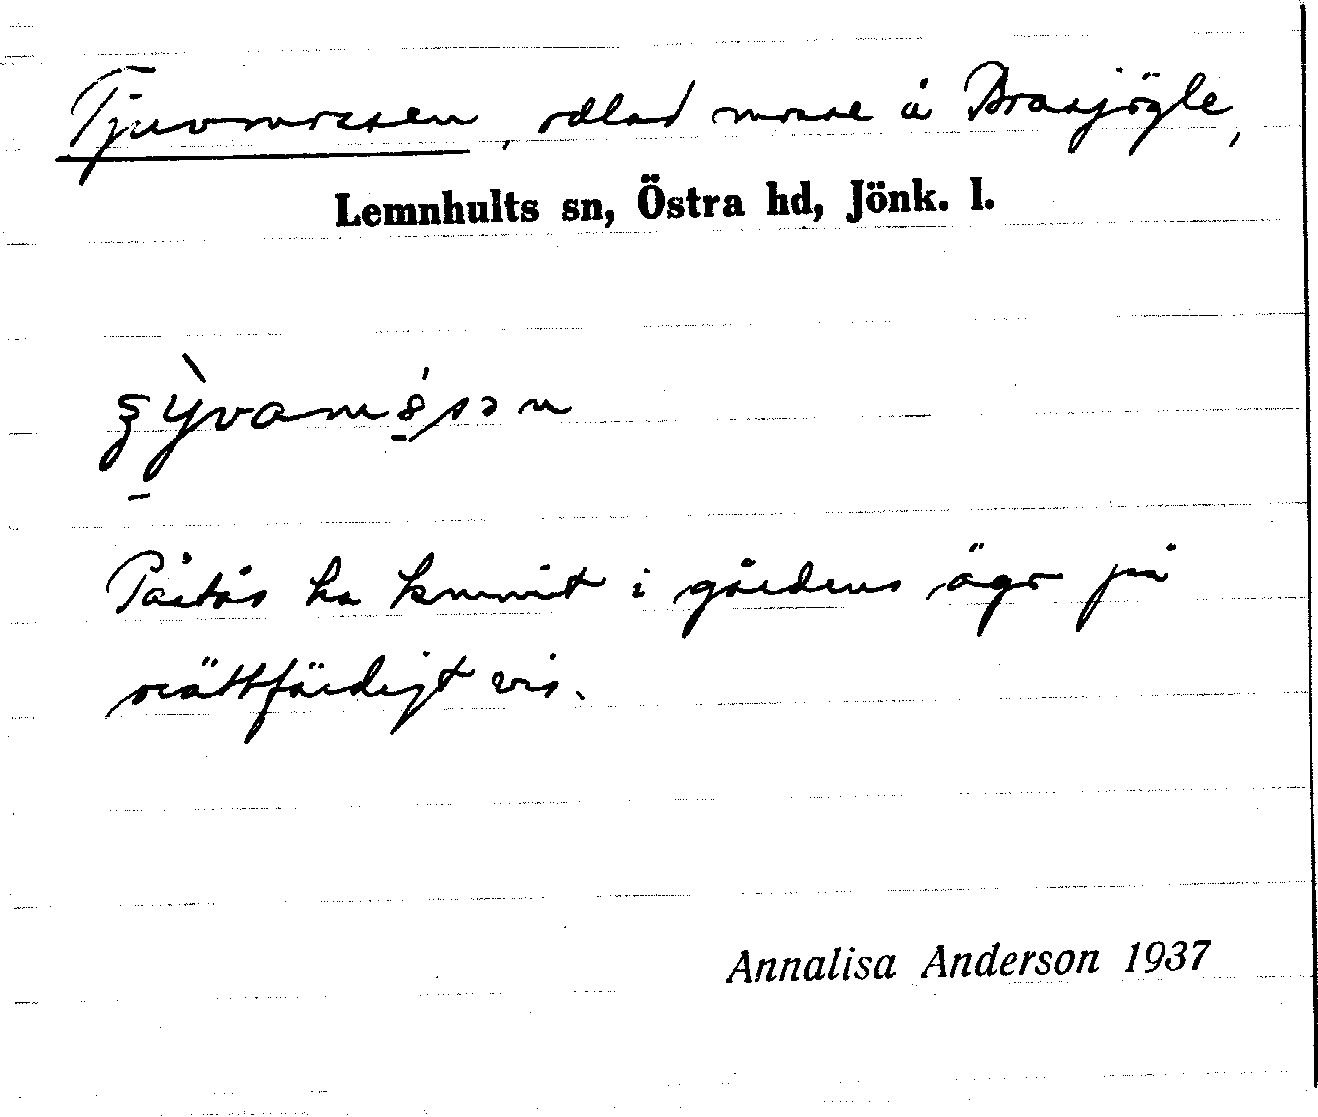 Tjuvmossen, odlad mosse å Brasjögle,
Lemnhults sn, Östra hd, Jönk. l.
Påstås ha kommit i gårdens ägo på
orättfärdigt vis.
Annalisa Anderson 1937